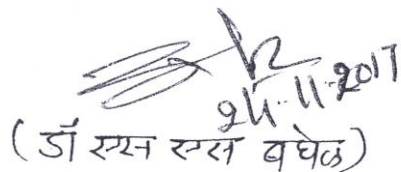 24-11-2017
(डॉ एस एस बघेल)